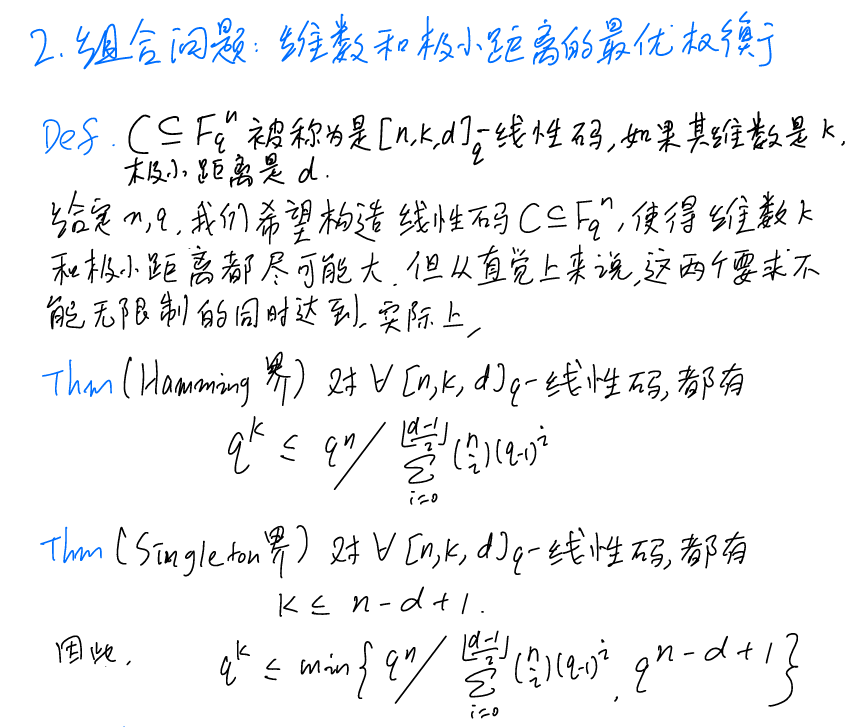 2. 组合问题: 维数和极小距离的最优权衡
Def. C ⊆ F_q^n 被称为是 [n,k,d]_q-线性码, 如果其维数是 k,
极小距离是 d.
给定 n,q, 我们希望构造 线性码 C ⊆ F_q^n, 使得维数 k
和极小距离都尽可能大. 但从直觉上来说, 这两个要求不
能无限制的同时达到. 实际上,
Thm (Hamming 界) 对 ∀ [n,k,d]_q-线性码, 都有
q^k ≤ q^n / \sum_{i=0}^{⌊\frac{d-1}{2}⌋} \binom{n}{i} (q-1)^i
Thm (Singleton 界) 对 ∀ [n,k,d]_q-线性码, 都有
k ≤ n-d+1.
因此, q^k ≤ min{ q^n / \sum_{i=0}^{⌊\frac{d-1}{2}⌋} \binom{n}{i} (q-1)^i , q^{n-d+1} }